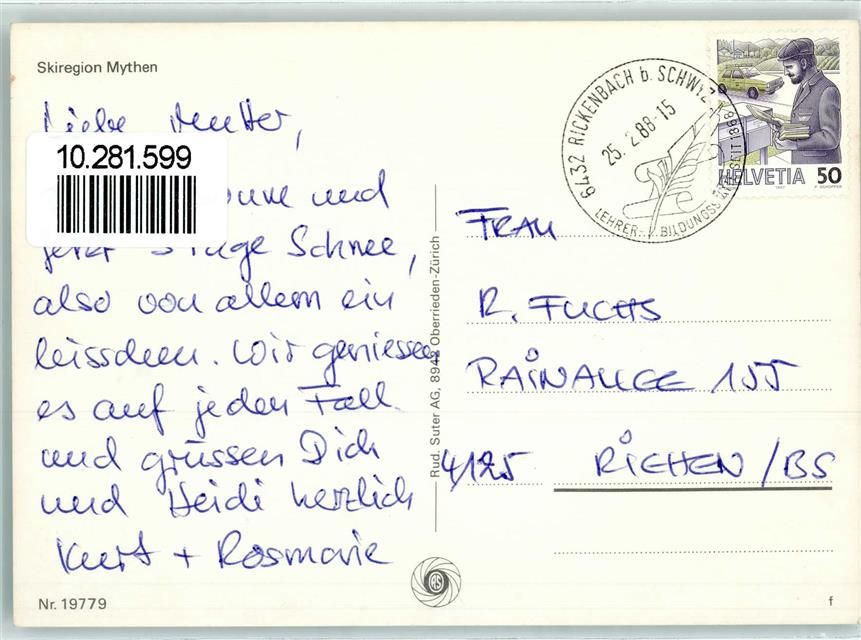 Skiregion Mythen
Liebe Mutter,
10.281.599
und
jetzt Schnee,
also von allem ein
bisschen. Wir geniessen
es auf jeden Fall
und grüssen Dich
und Heidi herzlich
Kurt + Rosmarie
Nr. 19779
Rud. Suter AG, 8942 Oberrieden-Zürich
RS
6432 RICKENBACH b. SCHWYZ
25.2.88-15
LEHRER- BILDUNGSS SEIT 1868
HELVETIA 50
1987
FRAU
R. FUCHS
RAINALLEE 155
4125 RIEHEN/BS
f